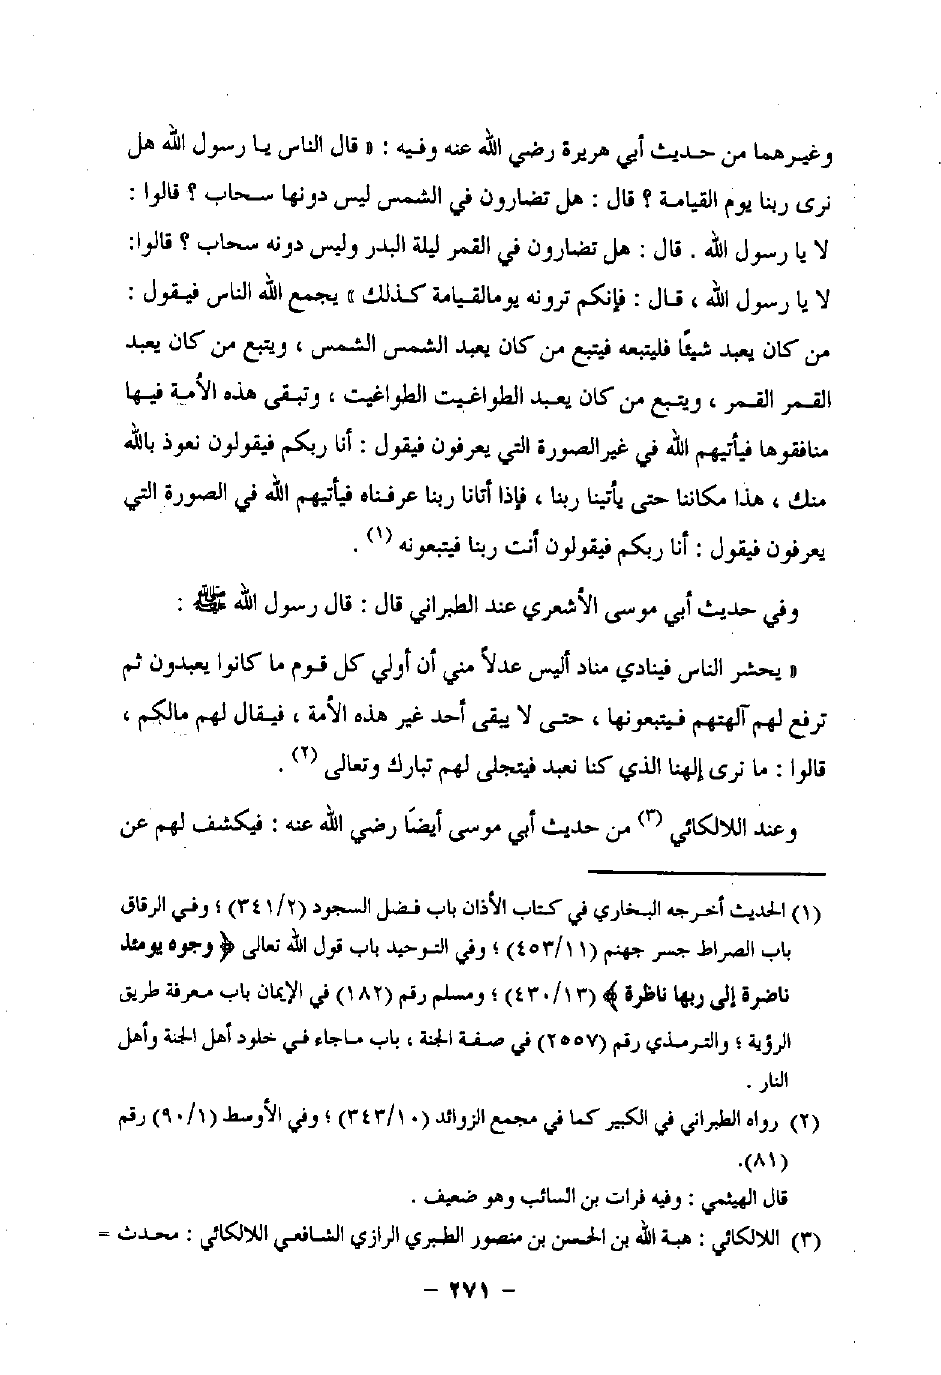 وغيرهما من حديث أبي هريرة رضي الله عنه وفيه : « قال الناس يا رسول الله هل
نرى ربنا يوم القيامة ؟ قال : هل تضارون في الشمس ليس دونها سحاب ؟ قالوا :
لا يا رسول الله . قال : هل تضارون في القمر ليلة البدر وليس دونه سحاب ؟ قالوا:
لا يا رسول الله ، قال : فإنكم ترونه يوم القيامة كذلك » يجمع الله الناس فيقول :
من كان يعبد شيئًا فليتبعه فيتبع من كان يعبد الشمس الشمس ، ويتبع من كان يعبد
القمر القمر ، ويتبع من كان يعبد الطواغيت الطواغيت ، وتبقى هذه الأمة فيها
منافقوها فيأتيهم الله في غير الصورة التي يعرفون فيقول : أنا ربكم فيقولون نعوذ بالله
منك ، هذا مكاننا حتى يأتينا ربنا ، فإذا أتانا ربنا عرفناه فيأتيهم الله في الصورة التي
يعرفون فيقول : أنا ربكم فيقولون أنت ربنا فيتبعونه (١) .
وفي حديث أبي موسى الأشعري عند الطبراني قال : قال رسول الله ﷺ :
« يحشر الناس فينادي مناد أليس عدلاً مني أن أولي كل قوم ما كانوا يعبدون ثم
ترفع لهم آلهتهم فيتبعونها ، حتى لا يبقى أحد غير هذه الأمة ، فيقال لهم مالكم ،
قالوا : ما نرى إلهنا الذي كنا نعبد فيتجلى لهم تبارك وتعالى (٢) .
وعند اللالكائي (٣) من حديث أبي موسى أيضًا رضي الله عنه : فيكشف لهم عن
(١) الحديث أخرجه البخاري في كتاب الأذان باب فضل السجود (٣٤١/٢) ؛ وفي الرقاق
باب الصراط جسر جهنم (٤٥٣/١١) ؛ وفي التوحيد باب قول الله تعالى ﴿ وجوه يومئذ
ناضرة إلى ربها ناظرة ﴾ (٤٣٠/١٣) ؛ ومسلم رقم (١٨٢) في الإيمان باب معرفة طريق
الرؤية ؛ والترمذي رقم (٢٥٥٧) في صفة الجنة ، باب ماجاء في خلود أهل الجنة وأهل
النار .
(٢) رواه الطبراني في الكبير كما في مجمع الزوائد (٣٤٣/١٠) ؛ وفي الأوسط (٩٠/١) رقم
(٨١).
قال الهيثمي : وفيه فرات بن السائب وهو ضعيف .
(٣) اللالكائي : هبة الله بن الحسن بن منصور الطبري الرازي الشافعي اللالكائي : محدث =
- ٢٧١ -